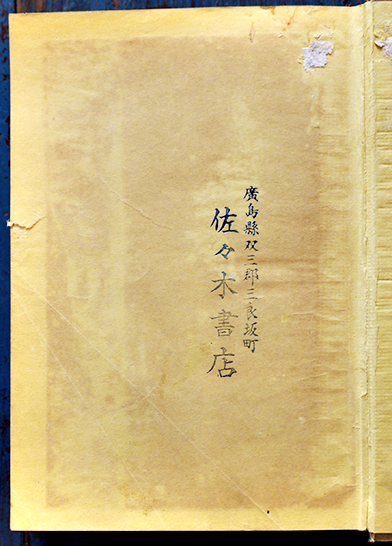 廣島縣双三郡三良坂町
佐々木書店